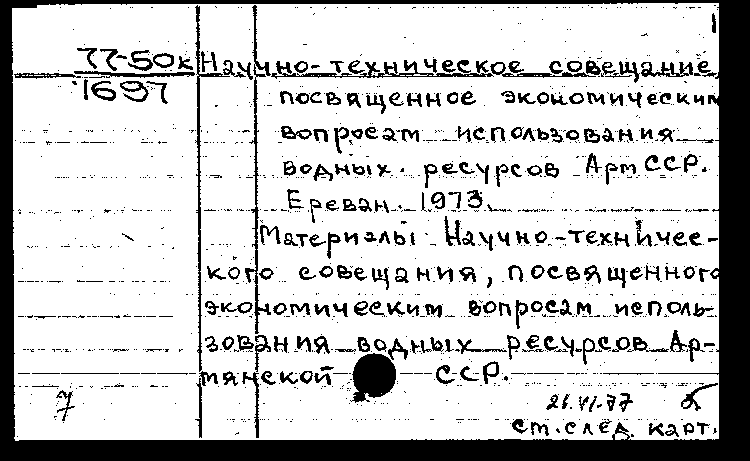 77-50к Научно-техническое совещание,
1697
посвященное экономическим
вопросам использования
водных ресурсов АрмССР.
Ереван. 1973.
Материалы Научно-техничес-
кого совещания, посвященного
экономическим вопросам исполь-
зования водных ресурсов Ар-
мянской ССР.
7
21.VI-77
ст. след. карт.